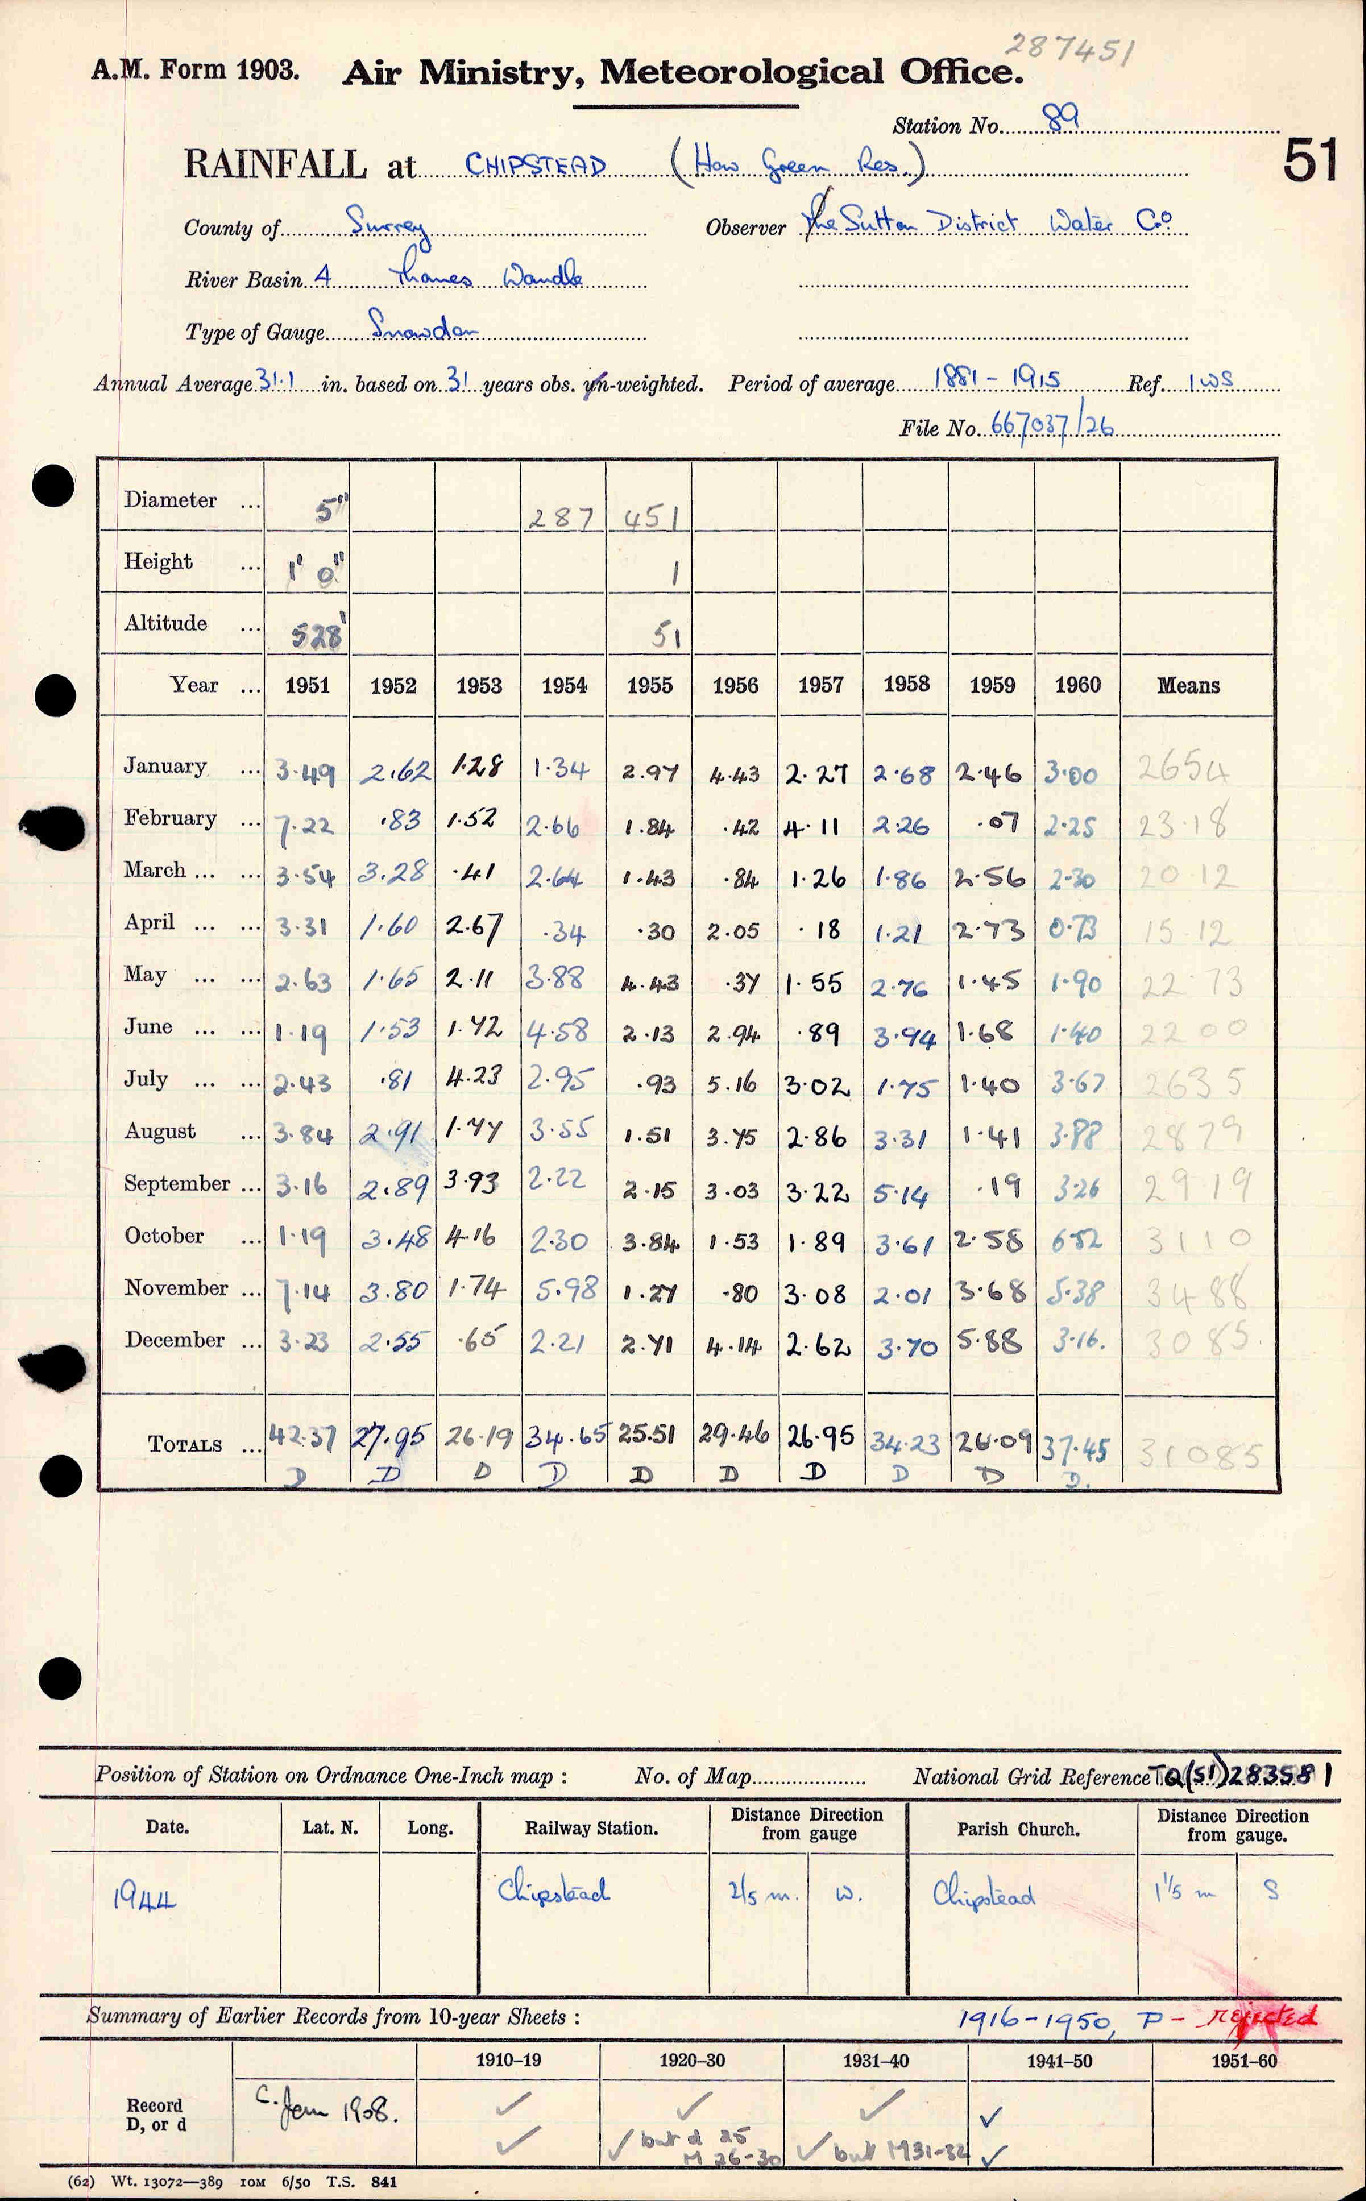 287451
A.M. Form 1903. Air Ministry, Meteorological Office.
Station No. 89
51
RAINFALL at CHIPSTEAD (How Green Res.)
County of Surrey Observer The Sutton District Water Co
River Basin 4 Thames Wandle
Type of Gauge Snowdon
Annual Average 31.1 in. based on 31 years obs. un-weighted. Period of average 1881-1915 Ref. IWS
File No. 667037/26
Diameter ... 5" 287 451
Height ... 1' 0" 1
Altitude ... 528' 51
Year ... 1951 1952 1953 1954 1955 1956 1957 1958 1959 1960 Means
January ... 3.49 2.62 1.28 1.34 2.97 4.43 2.27 2.68 2.46 3.00 2654
February ... 7.22 .83 1.52 2.66 1.84 .42 4.11 2.26 .07 2.25 23.18
March ... ... 3.54 3.28 .41 2.64 1.43 .84 1.26 1.86 2.56 2.30 20 12
April ... ... 3.31 1.60 2.67 .34 .30 2.05 .18 1.21 2.73 0.73 15 12
May ... ... 2.63 1.65 2.11 3.88 4.43 .37 1.55 2.76 1.45 1.90 22 73
June ... ... 1.19 1.53 1.72 4.58 2.13 2.94 .89 3.94 1.68 1.40 2200
July ... ... 2.43 .81 4.23 2.95 .93 5.16 3.02 1.75 1.40 3.67 2635
August ... 3.84 2.91 1.77 3.55 1.51 3.75 2.86 3.31 1.41 3.88 2879
September ... 3.16 2.89 3.93 2.22 2.15 3.03 3.22 5.14 .19 3.26 2919
October ... 1.19 3.48 4.16 2.30 3.84 1.53 1.89 3.61 2.58 6.52 3110
November ... 7.14 3.80 1.74 5.98 1.27 .80 3.08 2.01 3.68 5.38 3488
December ... 3.23 2.55 .65 2.21 2.71 4.14 2.62 3.70 5.88 3.16. 3085.
TOTALS ... 42.37 27.95 26.19 34.65 25.51 29.46 26.95 34.23 26.09 37.45 31085
D D D D D D D D D D.
Position of Station on Ordnance One-Inch map : No. of Map National Grid Reference TQ(51)283581
Date. Lat. N. Long. Railway Station. Distance Direction from gauge Parish Church. Distance Direction from gauge.
1944 Chipstead 2/5 m. W. Chipstead 1 1/5 m S
Summary of Earlier Records from 10-year Sheets : 1916-1950, P - rejected
1910–19 1920–30 1931–40 1941–50 1951–60
Record D, or d C. Jan 1908. ✓ ✓ ✓ ✓
✓ ✓ but d 25 M 26-30 ✓ but M31-32 ✓
(62) Wt. 13072—389 10M 6/50 T.S. 841